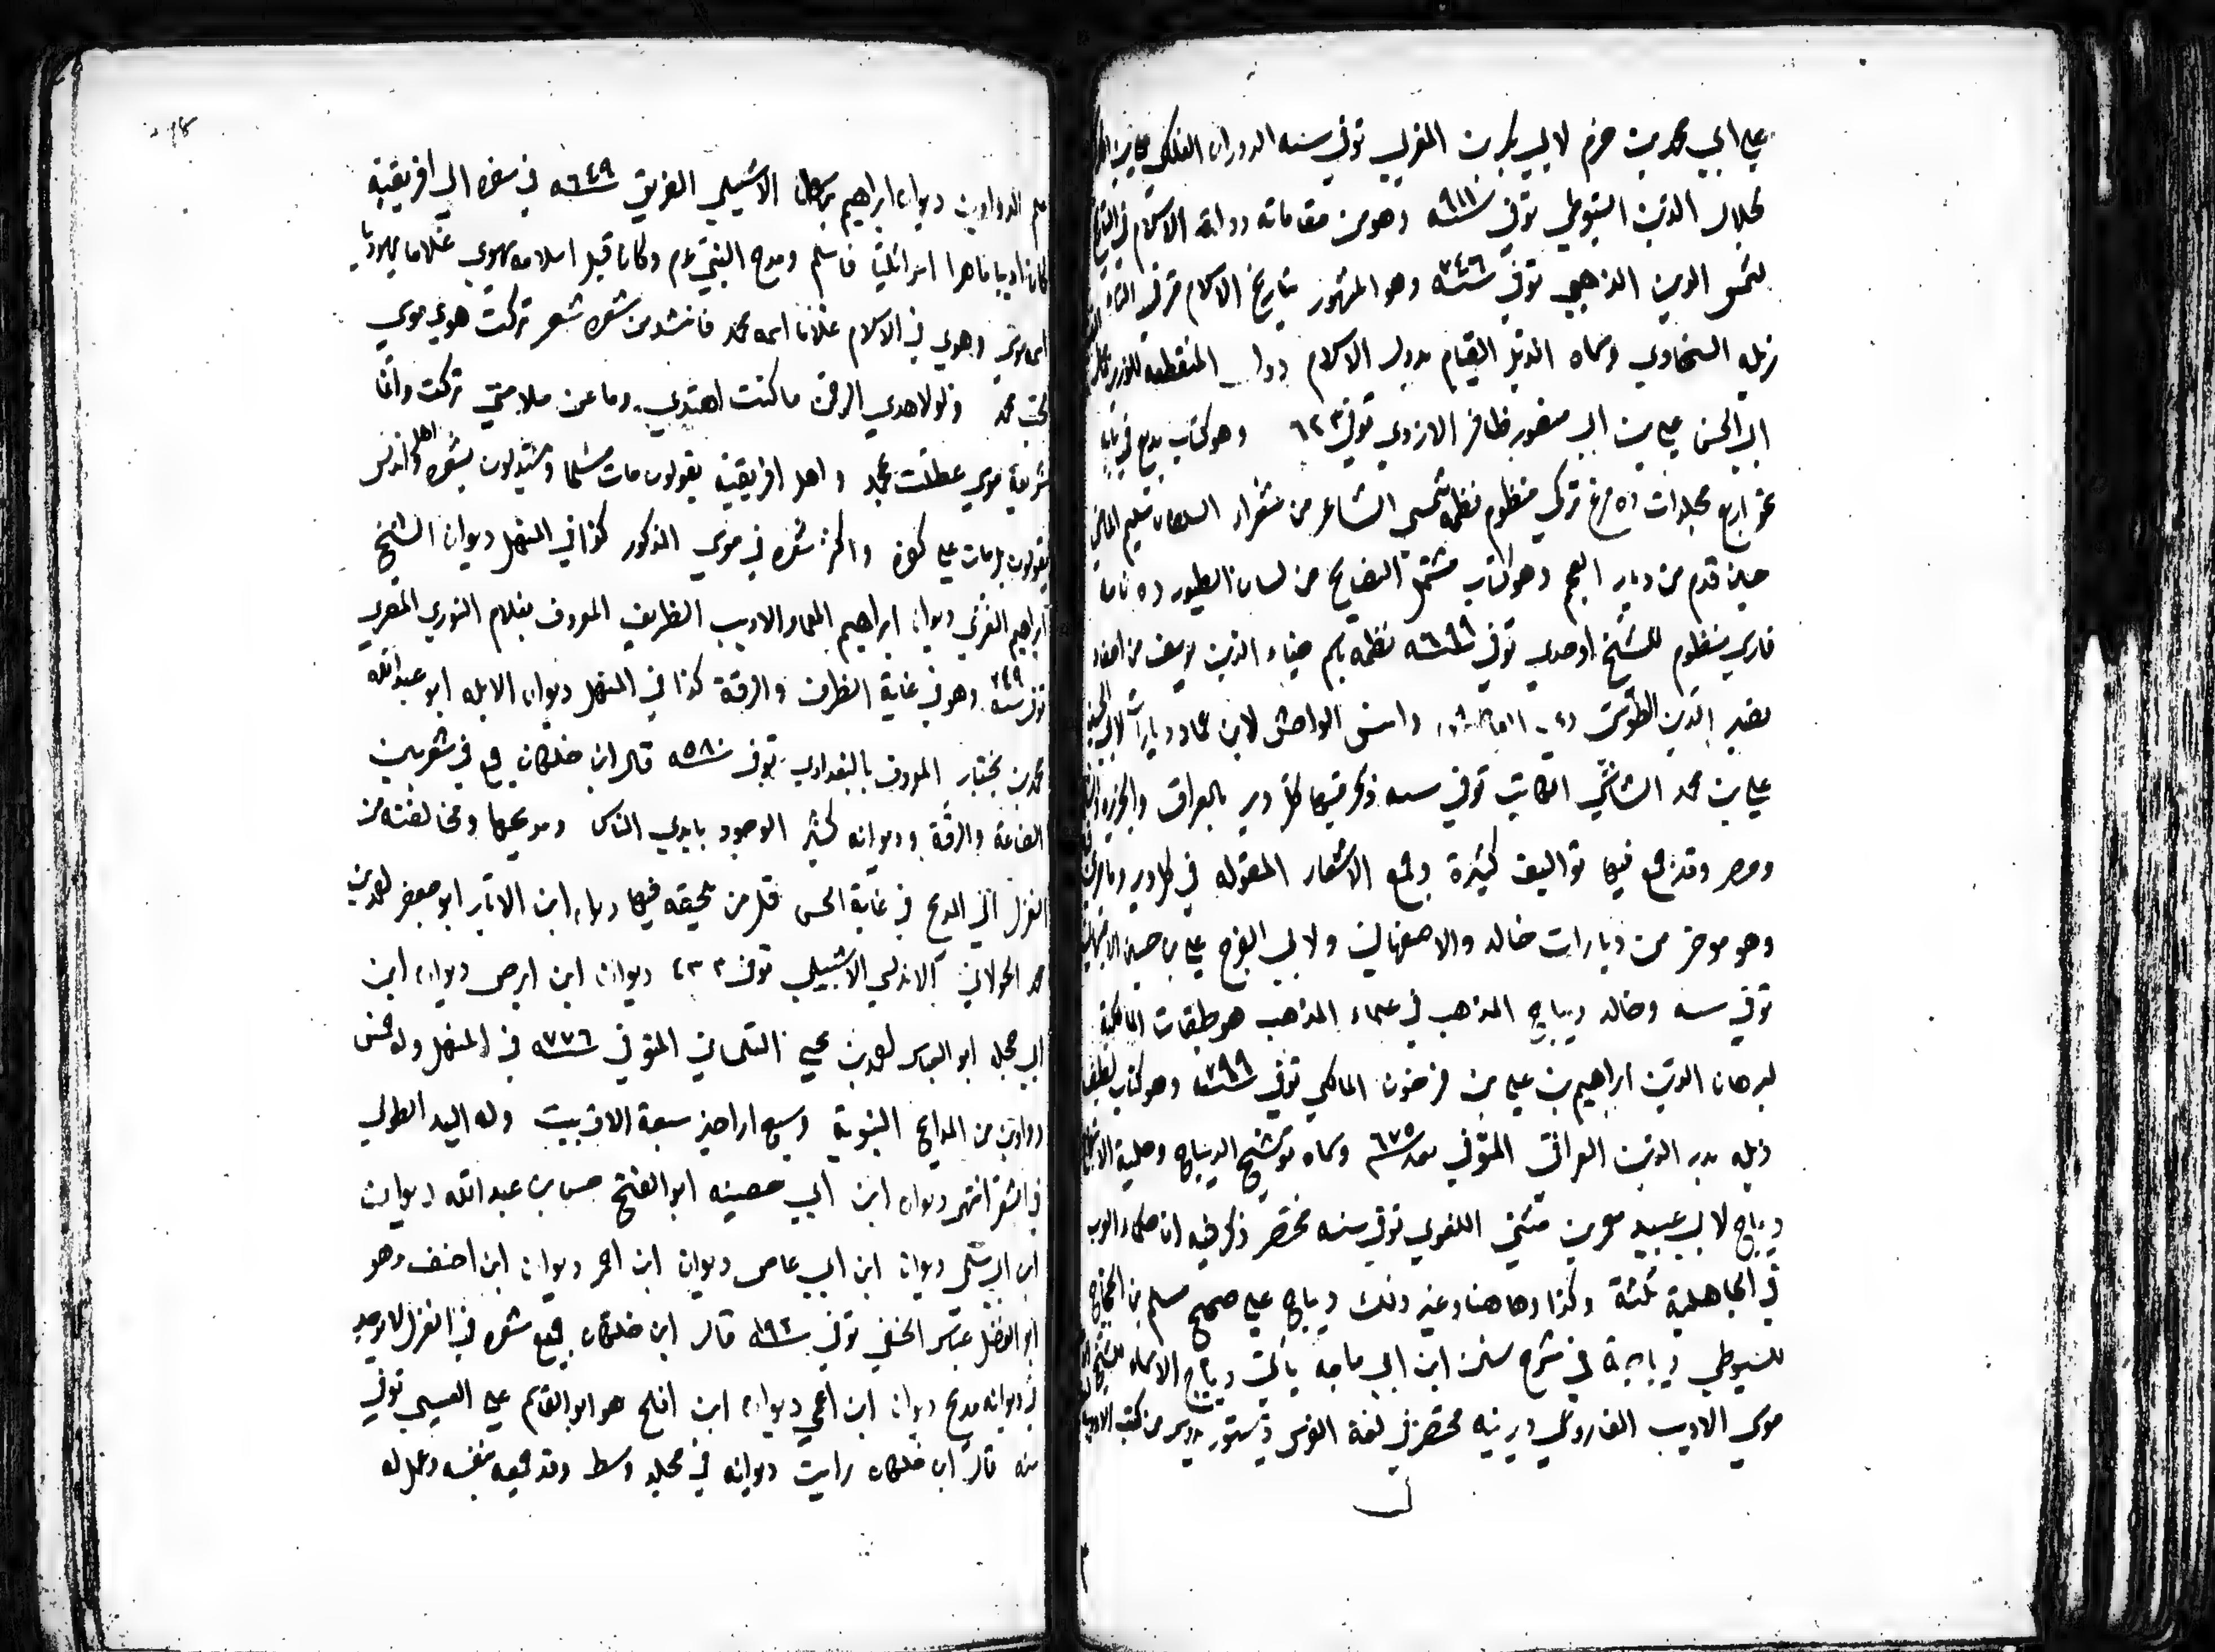 علي ابي محمد بن حزم لابي بكر بن المغربي توفي سنه الدوران الفلكي علي ابن
لجلال الدين السيوطي توفي سنه ٩١١ وهو من مقاماته دولة الاسلام في التاريخ
لشمس الدين الذهبي توفي سنه ٧٤٦ وهو المشهور بتاريخ الاسلام
ذيله السخاوي وسماه الذيل التام بدول الاسلام دول المنقطعه للوزير
ابي الحسن علي بن ابي منصور ظافر الازدي توفي ٦٢٣ وهو كتاب بديع في بابه
نحو اربع مجلدات ده مرغ تركي منظوم نظمه شمسي الشاعر من شعراء السلطان سليم الماضي
حين قدم من ديار العجم وهو كتاب مشتمل النصايح من لسان الطيور ده نامه
فارسي منظوم للشيخ اوحدي توفي سنه ٦٩٩ نظمه باسم ضياء الدين يوسف من احفاد
نصير الدين الطوسي وانس الواحش لابن عماد ديارات لابي الحسن
علي بن محمد الشابشتي الكاتب توفي سنه ذكر فيها كل دير بالعراق والجزيره
ومصر وقد جمع فيها تواليف كثيرة وجمع الاشعار المقوله في كل دير
وهو موخر من ديارات خالد والاصفهاني ولابي الفرج علي بن حسين الاصفهاني
توفي سنه وخالد ديباج المذهب في علماء المذهب هو طبقات المالكية
لبرهان الدين ابراهيم بن علي بن فرحون المالكي توفي سنه ٧٩٩ وهو كتاب لطيف
ذيله بدر الدين العراقي المتوفي بعد سنه ٦٧٥ وسماه توشيح الديباج وحلية الابتهاج
ديباج لابي عبيد معمر بن مثني اللغوي توفي سنه مختصر ذكر فيه ان حكماء العرب
في الجاهلية ثلثة وكذا وهاهنا وغير ذلك ديباج علي صحيح مسلم بن الحجاج
للسيوطي ديباجة في شرح سنن ابن ابي ماجه يأتي ديباج الاسماء للشيخ
موسي الاديب الفاروقي ديرينه مختصر في لغة الفرس من كتب
علم الدواوين ديوان ابراهيم بن سهل الاشبيلي الغريق سنه ٦٤٩ في سفره الي افريقيه
كان اديبا ماهرا اسرائليا فاسلم ومدح النبي عم وكان قبل اسلامه يهوي غلاما يهوديا
اسمه موسي وهوي في الاسلام غلاما اسمه محمد فانشد من شعره شعر تركت هوي موسي
لحب محمد ولولا هدي الرحمن ما كنت اهتدي وما عن ملامتي تركت وانما
شريعة موسي عطلت بمحمد واهل افريقية يقولون مات مسلما ويستدلون بشعره واهل اندلس
يقولون بل مات علي كفره واكثر شعره في موسي المذكور كذا في المنهل ديوان الشيخ
ابراهيم الغزي ديوان ابراهيم المعمار الاديب الظريف المعروف بغلام النوري المصري
توفي سنه ٧٤٩ وهو في غاية الظرف والرقة كذا في المنهل ديوان الابله ابو عبدالله
محمد بن بختيار المعروف بالبغدادي توفي سنه ٥٨٠ قال ابن خلكان جمع في شعره بين
الصناعة والرقة وديوانه كثير الوجود بايدي الناس ومديحها ومخالفته من
الغزل الي المدح في غاية الحسن قل من يلحقه فيها ديوان ابن الابار ابو جعفر احمد بن
محمد الخولاني الاندلسي الاشبيلي توفي ٤٣٣ ديوان ابن ابرص ديوان ابن
ابي حجله ابو العباس احمد بن يحيي التلمساني المتوفي سنه ٧٧٦ في المنهل وله خمس
دواوين من المدايح النبوية وسبع اراجيز سبعة الاف بيت وله اليد الطولي
في الشعر انتهي ديوان ابن ابي حصينه ابو الفتح حسن بن عبدالله ديوان
ابن ابي سلمي ديوان ابن ابي عاص ديوان ابن احمر ديوان ابن احنف وهو
ابو الفضل عباس الحنفي توفي سنه ١٩٢ قال ابن خلكان جميع شعره في الغزل لا يوجد
في ديوانه مديح ديوان ابن اعمي ديوان ابن افلح هو ابو القاسم علي العبسي توفي
سنه قال ابن خلكان رايت ديوانه في مجلد وسط وقد جمعه بنفسه وعمل له